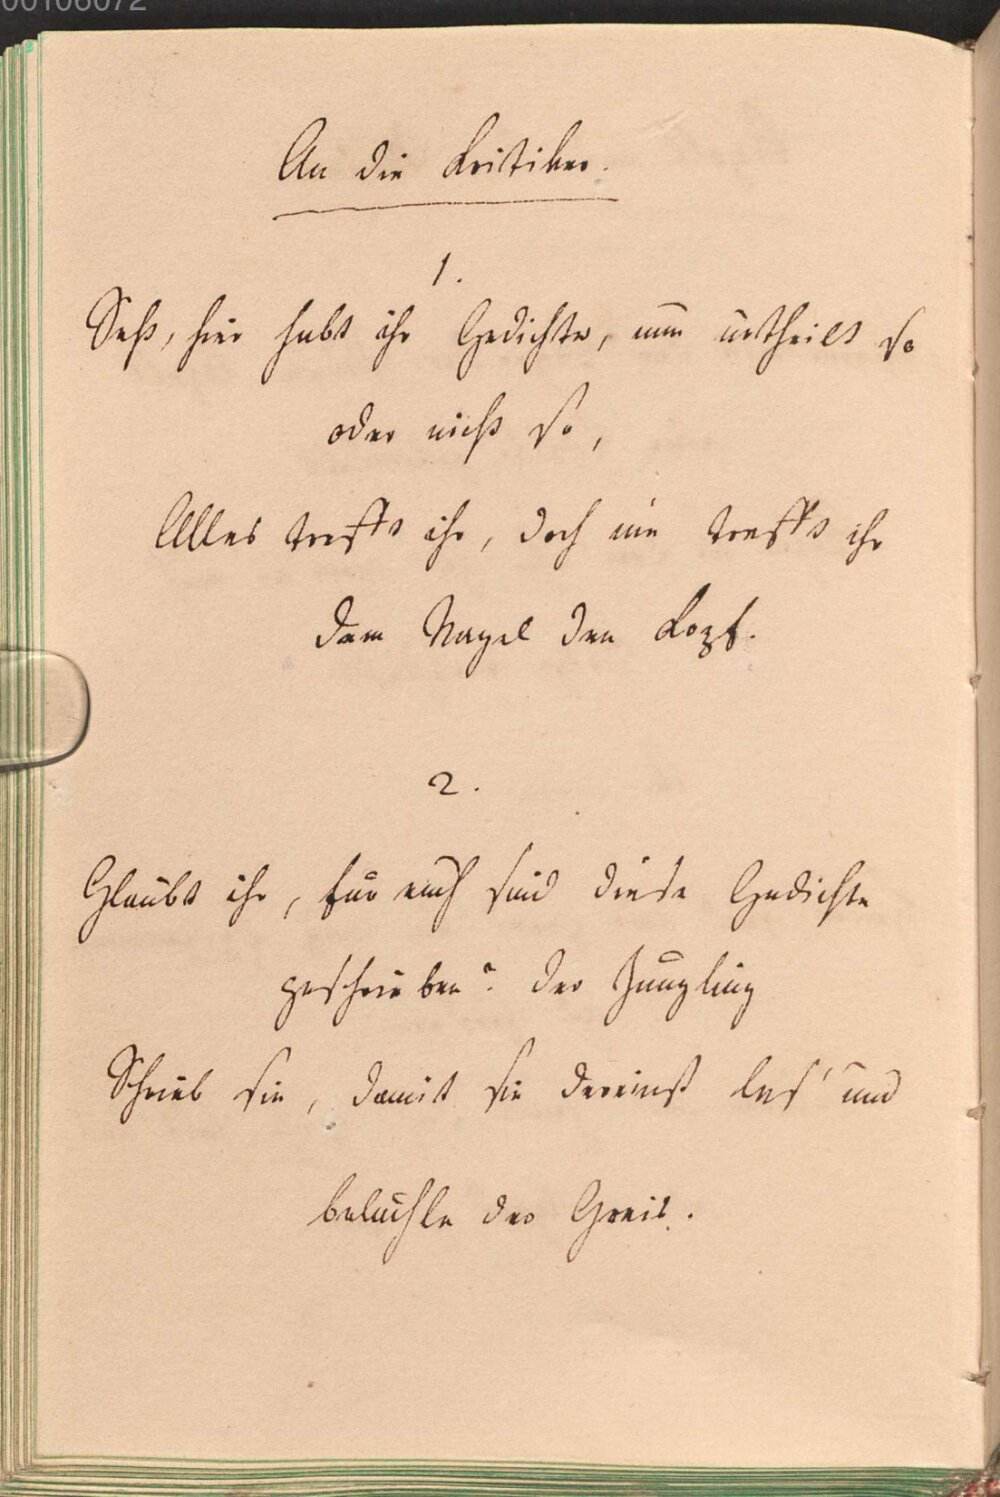 00106072
An die Kritiker.
1.
Seht, hier habt ihr Gedichte, nun urtheilt so
oder nicht so,
Alles trefft ihr, doch nie trefft ihr
dem Nagel den Kopf.
2.
Glaubt ihr, für euch sind diese Gedichte
geschrieben? Der Jüngling
Schrieb sie, damit sie dereinst les' und
belächle der Greis.